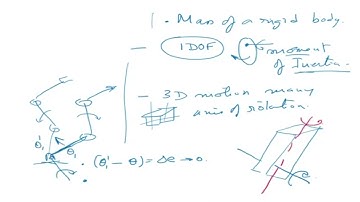 1. Mass of a rigid body.
- 1DOF moment
of Inertia.
- 3D motion many
axis of rotation.
θ₁' θ₁
• (θ₁' - θ₁) = Δθ → 0.